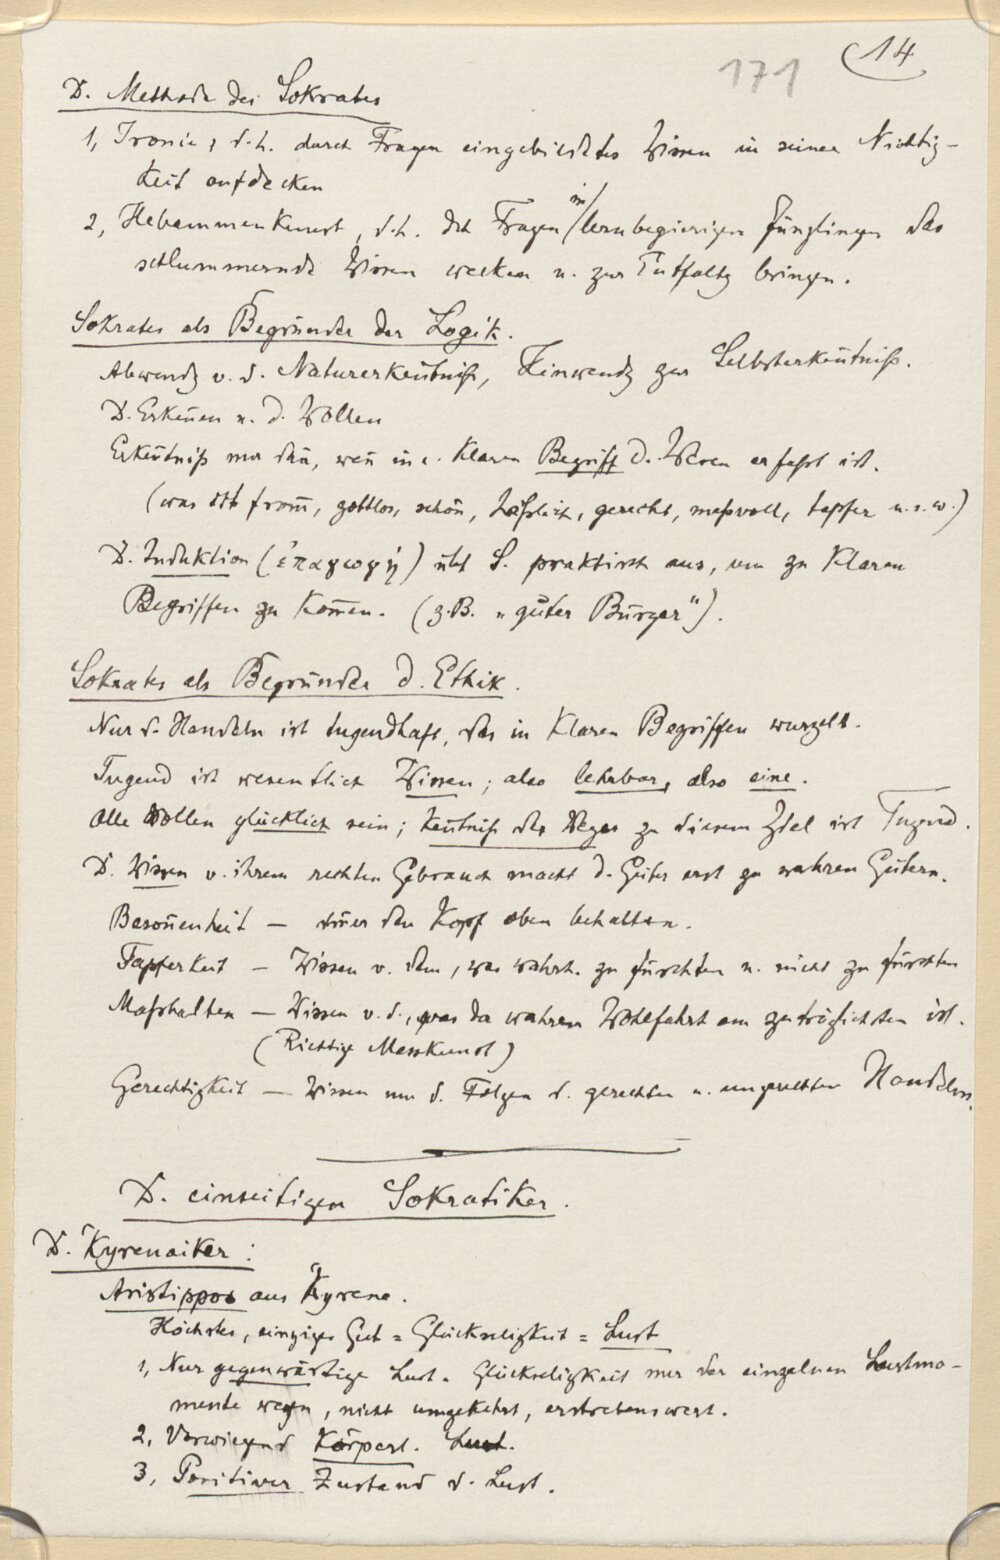 (14
171
D. Methode des Sokrates
1, Ironie, d.h. durch Fragen eingebildetes Wissen in seiner Nichtig-
keit aufdecken
2, Hebammenkunst, d.h. dch Fragen in/lernbegierigen Jünglingen das
schlummernde Wissen wecken u. zur Entfaltg bringen.
Sokrates als Begründer der Logik.
Abwendg v. d. Naturerkeñtniß, Hinwendg zur Selbsterkeñtniß.
D. Erkeñen u. D. Wollen
Erkeñtniß nur dañ, weñ in e. klaren Begriff D. Wesen erfaßt ist.
(was ist from̅, gottlos, schön, häßlich, gerecht, maßvoll, tapfer u.s.w.)
D. Induktion (ἐπαγωγή) übt S. praktisch aus, um zu klaren
Begriffen zu kom̅en. (z.B. „guter Bürger“).
Sokrates als Begründer d. Ethik.
Nur d. Handeln ist tugendhaft, das in klaren Begriffen wurzelt.
Tugend ist wesentlich Wissen; also lehrbar, also eine.
Alle wollen glücklich sein; Keñtniß des Weges zu diesem Ziel ist Tugend.
D. Wissen v. ihrem rechten Gebrauch macht d. Güter erst zu wahren Gütern.
Besoñenheit — im̅er den Kopf oben behalten.
Tapferkeit — Wissen v. dem, was wahrh. zu fürchten u. nicht zu fürchten
Maßhalten — Wissen v. d., was der wahren Wohlfahrt am zuträglichsten ist.
(Richtige Messkunst)
Gerechtigkeit — Wissen um d. Folgen d. gerechten u. ungerechten Handelns.
D. einseitigen Sokratiker.
D. Kyrenaiker:
Aristippos aus Kyrene.
Höchstes, einziges Gut = Glückseligkeit = Lust
1, Nur gegenwärtige Lust. Glückseligkeit nur der einzelnen Lustmo-
mente wegen, nicht umgekehrt, erstrebenswert.
2, Vorwiegend körperl. Lust.
3, Positiver Zustand d. Lust.